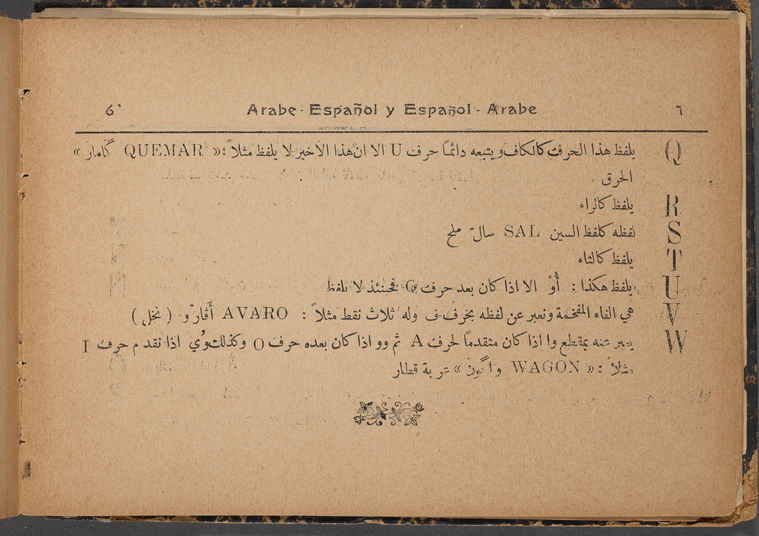 6 Arabe-Español y Español-Arabe ٦
Q يلفظ هذا الحرف كالكاف ويتبعه دائماً حرف U الا ان هذا الاخير لا يلفظ مثلاً: « QUEMAR كامار »
الحرق .
R يلفظ كالراء
S لفظه كلفظ السين SAL سال ملح
T يلفظ كالتاء
U يلفظ هكذا : أُوْ الا اذا كان بعد حرف Q فحينئذ لا يلفظ
V هي الفاء المفخمة ونعبر عن لفظه بحرف ف وله ثلاث نقط مثلاً : AVARO أڤارو ( نخل )
W يعبر عنه بمقطع وا اذا كان متقدماً لحرف A ثم وو اذا كان بعده حرف O وكذلك وُي اذا تقدم حرف I
مثلاً : « WAGON واگون » عربة قطار